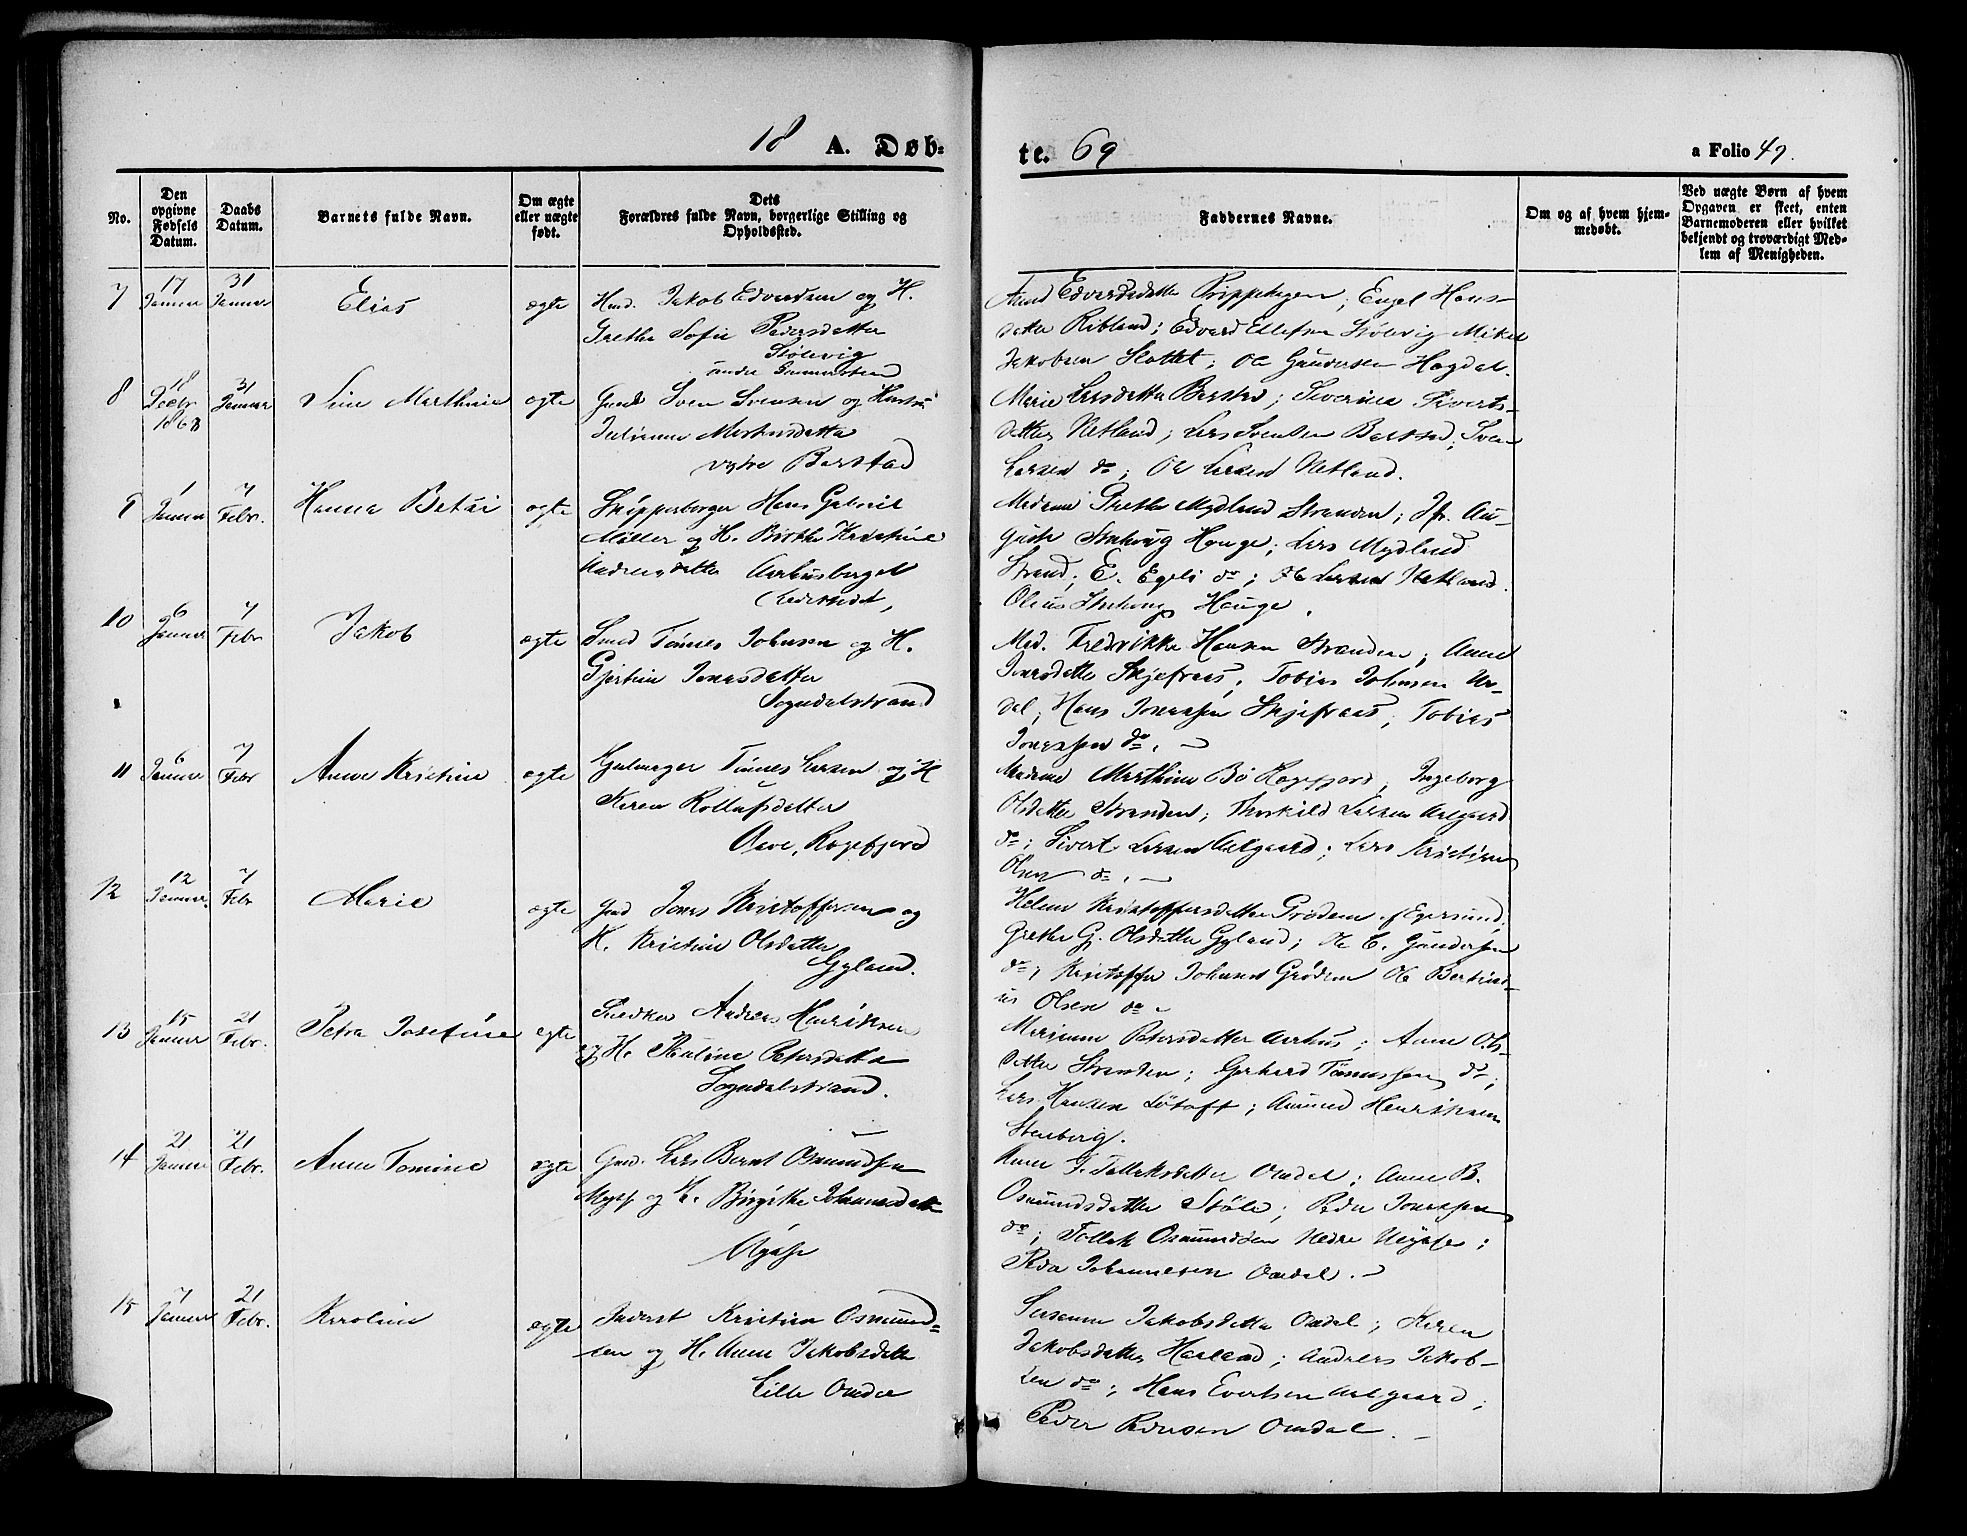 18 A. Døb-
te. 69
a Folio 49.
No.
Den opgivne Fødsels Datum.
Daabs Datum.
Barnets fulde Navn.
Om ægte eller uægte født.
Dets Forældres fulde Navn, borgerlige Stilling og Opholdssted.
Faddernes Navne.
Om og af hvem hjem-
medøbt.
Ved uægte Børn af hvem
Opgaven er skeet, enten
Barnemoderen eller hvilket
bekjendt og troværdigt Med-
lem af Menigheden.
7 17 Januar 31 Januar Elias ægte
Jakob Edvardsen og H.
Grethe Sofie Pedersdatter
Stølevig
Edvardsdatter; Engel Hans-
datter Ribland; Edvard Ellefsen Stølevig Mikal
Jakobsen Slottet; Ole Gundersen Hogdal.
8 18 Decbr 1868 31 Januar Sine Marthine ægte
Gmd Sven Svensen og Hustru
Juliane
Berstad
Marie Larsdatter Berstad; Severine Siverts-
datter Netland; Lars Svensen Berstad; Sven
Larsen do; Ole Larsen Netland.
9 1 Januar 7 Febr. Hanna Betsi ægte
Skipperborger Hans Gabriel
Møller og H. Birthe Kristine
Andreasdatter Aarhusberget
Ladestedet,
Madame Grethe Mydland Stranden; Jfr. Au-
guste Hauge; Lars Mydland
Strand; E. Egeli do; Ole Larsen Netland.
Olaus Hauge.
10 6 Januar 7 Febr Jakob ægte
Smed Tønnes Johnsen og H.
Gjertine Jonasdatter
Sogndalstrand
Mad. Fredrikke Hansen Stranden; Anne
Jonasdatter Skjefraas; Tobias Johnsen Aa-
dal; Hans Jonassen Skjefraas; Tobias
Jonassen do.
11 6 Januar 7 Febr Anne Kristine ægte
Tønnes Larsen og H
Karen Rollufsdatter
Aave, Rægefjord
Madame Marthine Bø Rægefjord; Ingeborg
Olsdatter Stranden; Thorkild Larsen Aalgaard
do; Sivert Larsen Aalgaard; Lars Kristian
Olsen do.
12 12 Januar. 7 Febr Marie ægte
Gmd Jonas Kristoffersen og
H. Kristine Olsdatter
Gyland.
Helene Kristoffersdatter Grødem f Egersund;
Grethe G. Olsdatter Gyland; Ole C. Gundersen
do; Kristoffer Johnsen Grødem Ole Bertini-
us Olsen do.
13 15 Januar 21 Febr. Petra Josefine ægte
Snedker Andreas Henriksen
og H. Pauline Petersdatter
Sogndalstrand.
Mariane Petersdatter Aarhus; Anne Ols-
datter Stranden; Gerhard Tønnessen do;
Lars Hansen Løtoft; Amund Henriksen
Stenberg.
14 21 Januar 21 Febr. Anne Tomine ægte
Gmd. Lars Bernt Osmundsen
og H. Birgithe Johannesdatter
Anne T. Tolleksdatter Omdal; Anne B.
Osmundsdatter Støle; Peder Jonassen
do; Tollak Osmundsen Nedre;
Peder Johannesen Omdal.
15 7 Januar 21 Febr. Karoline ægte
Inderst Kristian Osmund-
sen og H. Anne Jakobsdatter
Lille Omdal
Susanne Jakobsdatter Omdal; Karen
Jakobsdatter Haaland; Andreas Jakob-
sen do; Hans Evertsen Aalgaard;
Peder Pedersen Omdal.